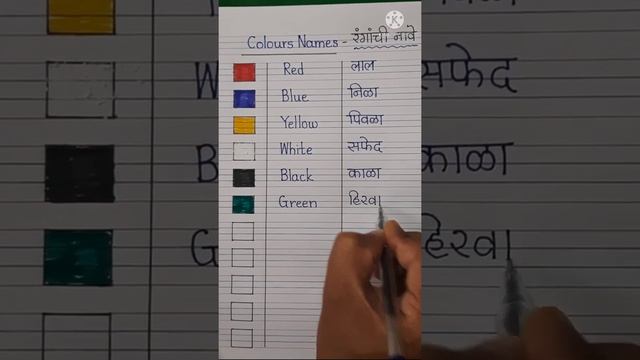 Colours Names - रंगांची नावे
Red लाल
Blue निळा
Yellow पिवळा
White सफेद
Black काळा
Green हिरवा